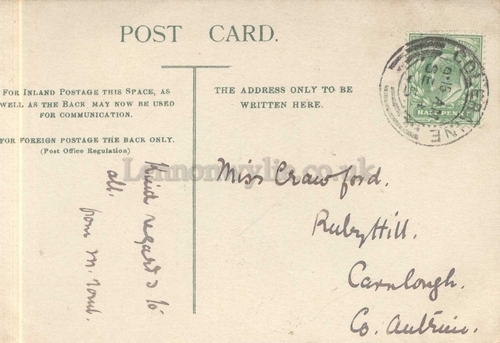 POST CARD.
FOR INLAND POSTAGE THIS SPACE, AS
WELL AS THE BACK MAY NOW BE USED
FOR COMMUNICATION.
FOR FOREIGN POSTAGE THE BACK ONLY.
(Post Office Regulation)
THE ADDRESS ONLY TO BE
WRITTEN HERE.
HALFPENNY
Kind regards to
all.
from M.
Miss Crawford.
Ruby Hill.
Carnlough.
Co. Antrim.